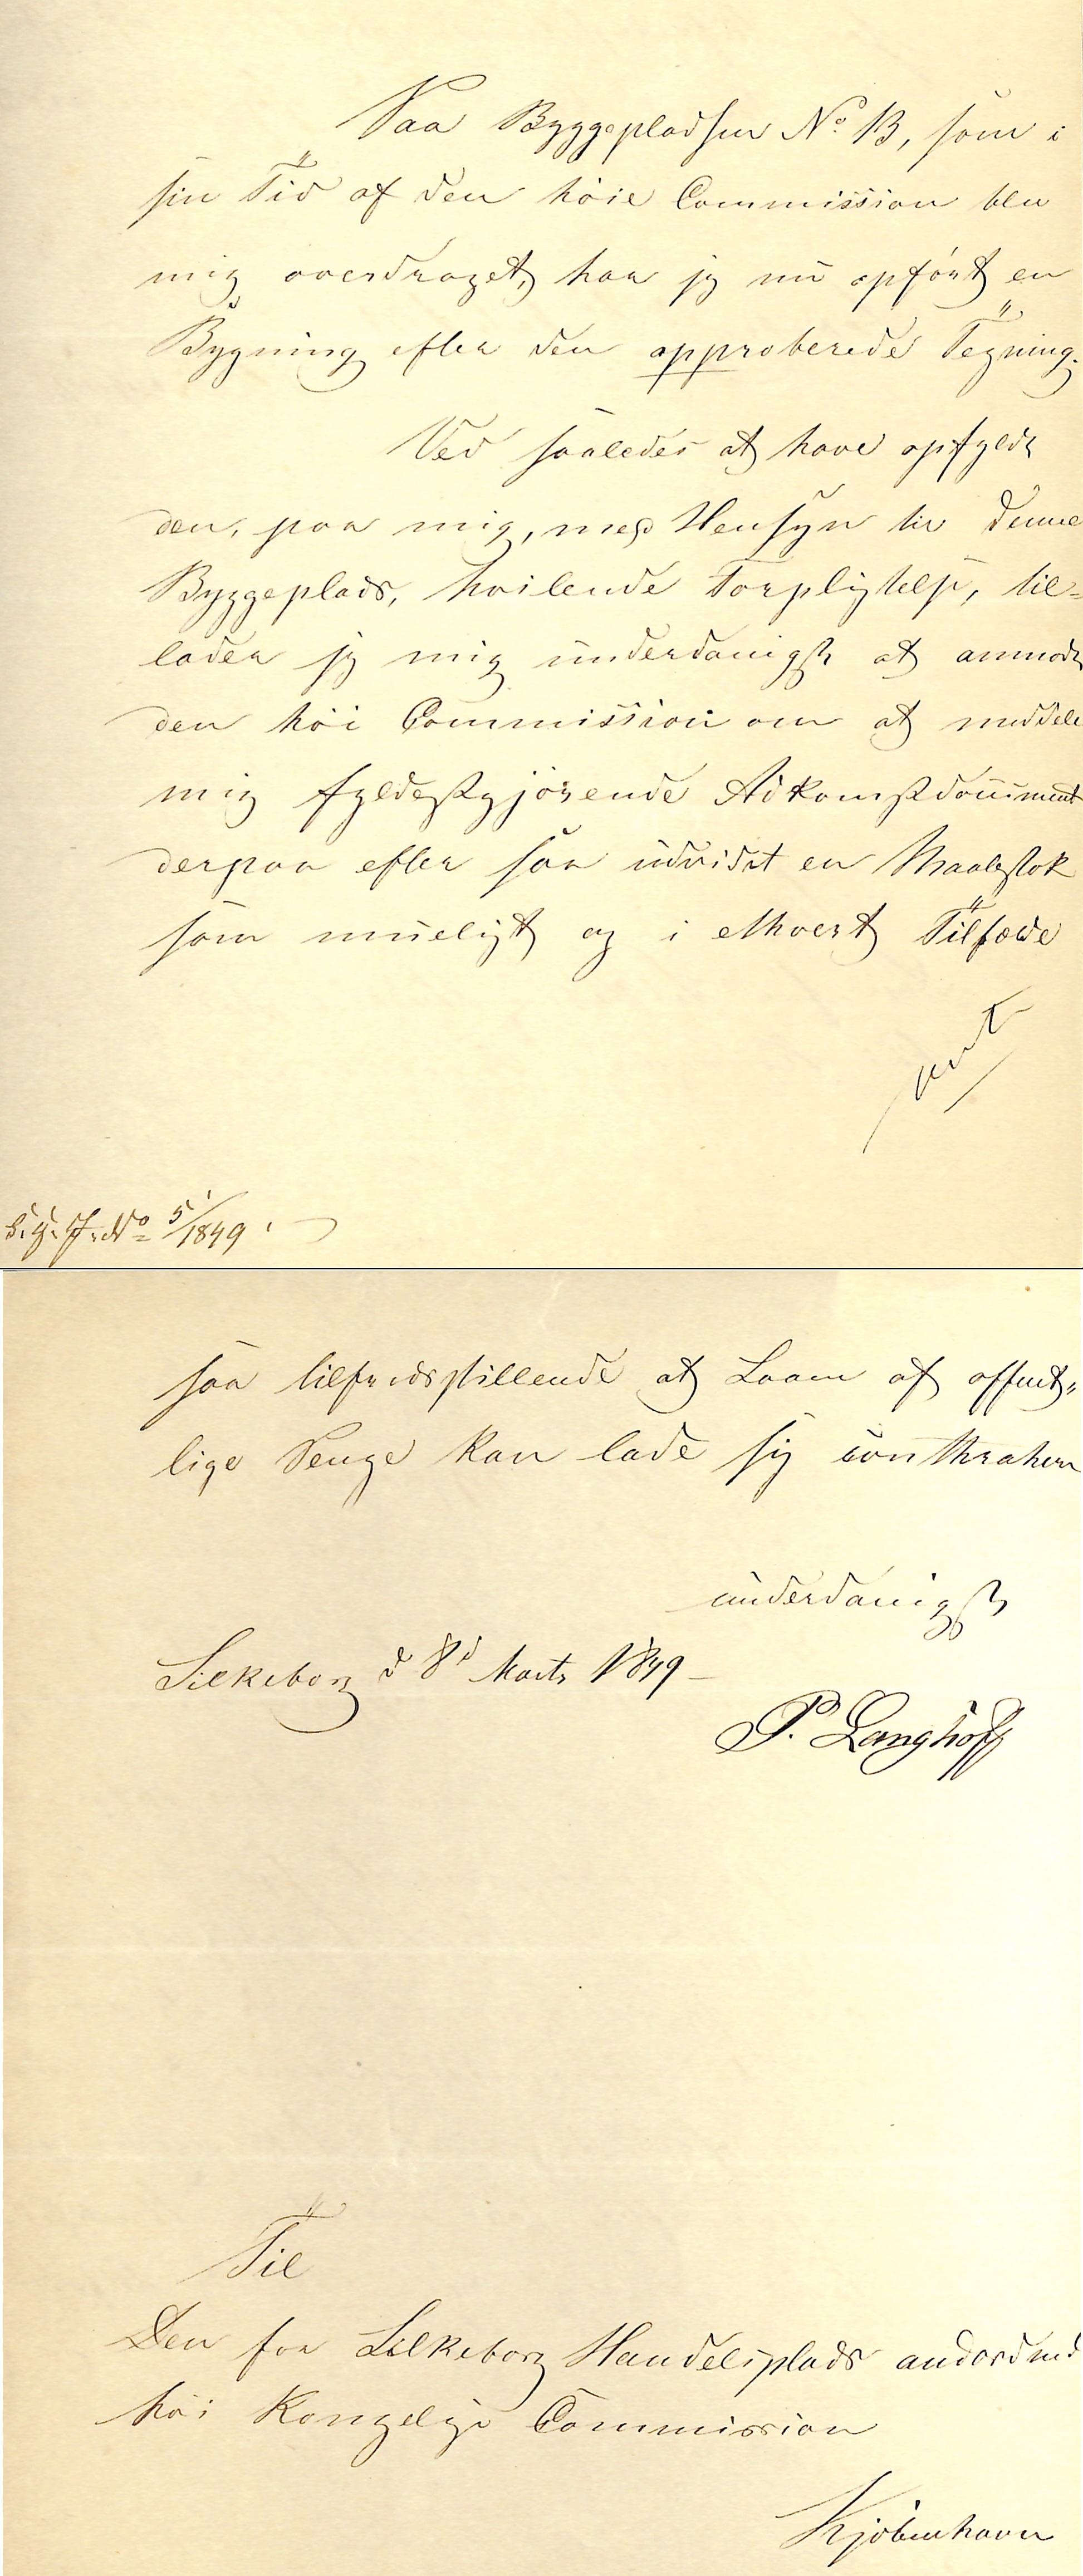 Paa Byggepladsen No 13, som i
sin Tid af den høie Commission blev
mig overdraget, har jeg nu opført en
Bygning efter den approberede Tegning.
Ved saaledes at have opfyldt
den, paa mig, med Hensyn til denne
Byggeplads, hvilende Forpligtelse, til-
lader jeg mig underdanigst at anmode
den høie Commission om at meddele
mig fyldestgjørende Adkomstdocument
derpaa efter saa udvidet en Maalestok
som mueligt og i ethvert Tilfælde
No 5/1849
saa tilfredsstillende at Laan af offent-
lige Penge kan lade sig conthrahere
underdanigst
Silkeborg d 8d Marts 1849
P. Langhoff
Til
Den for Silkeborg Handelsplads anordnede
høie Kongelige Commission
Kjøbenhavn